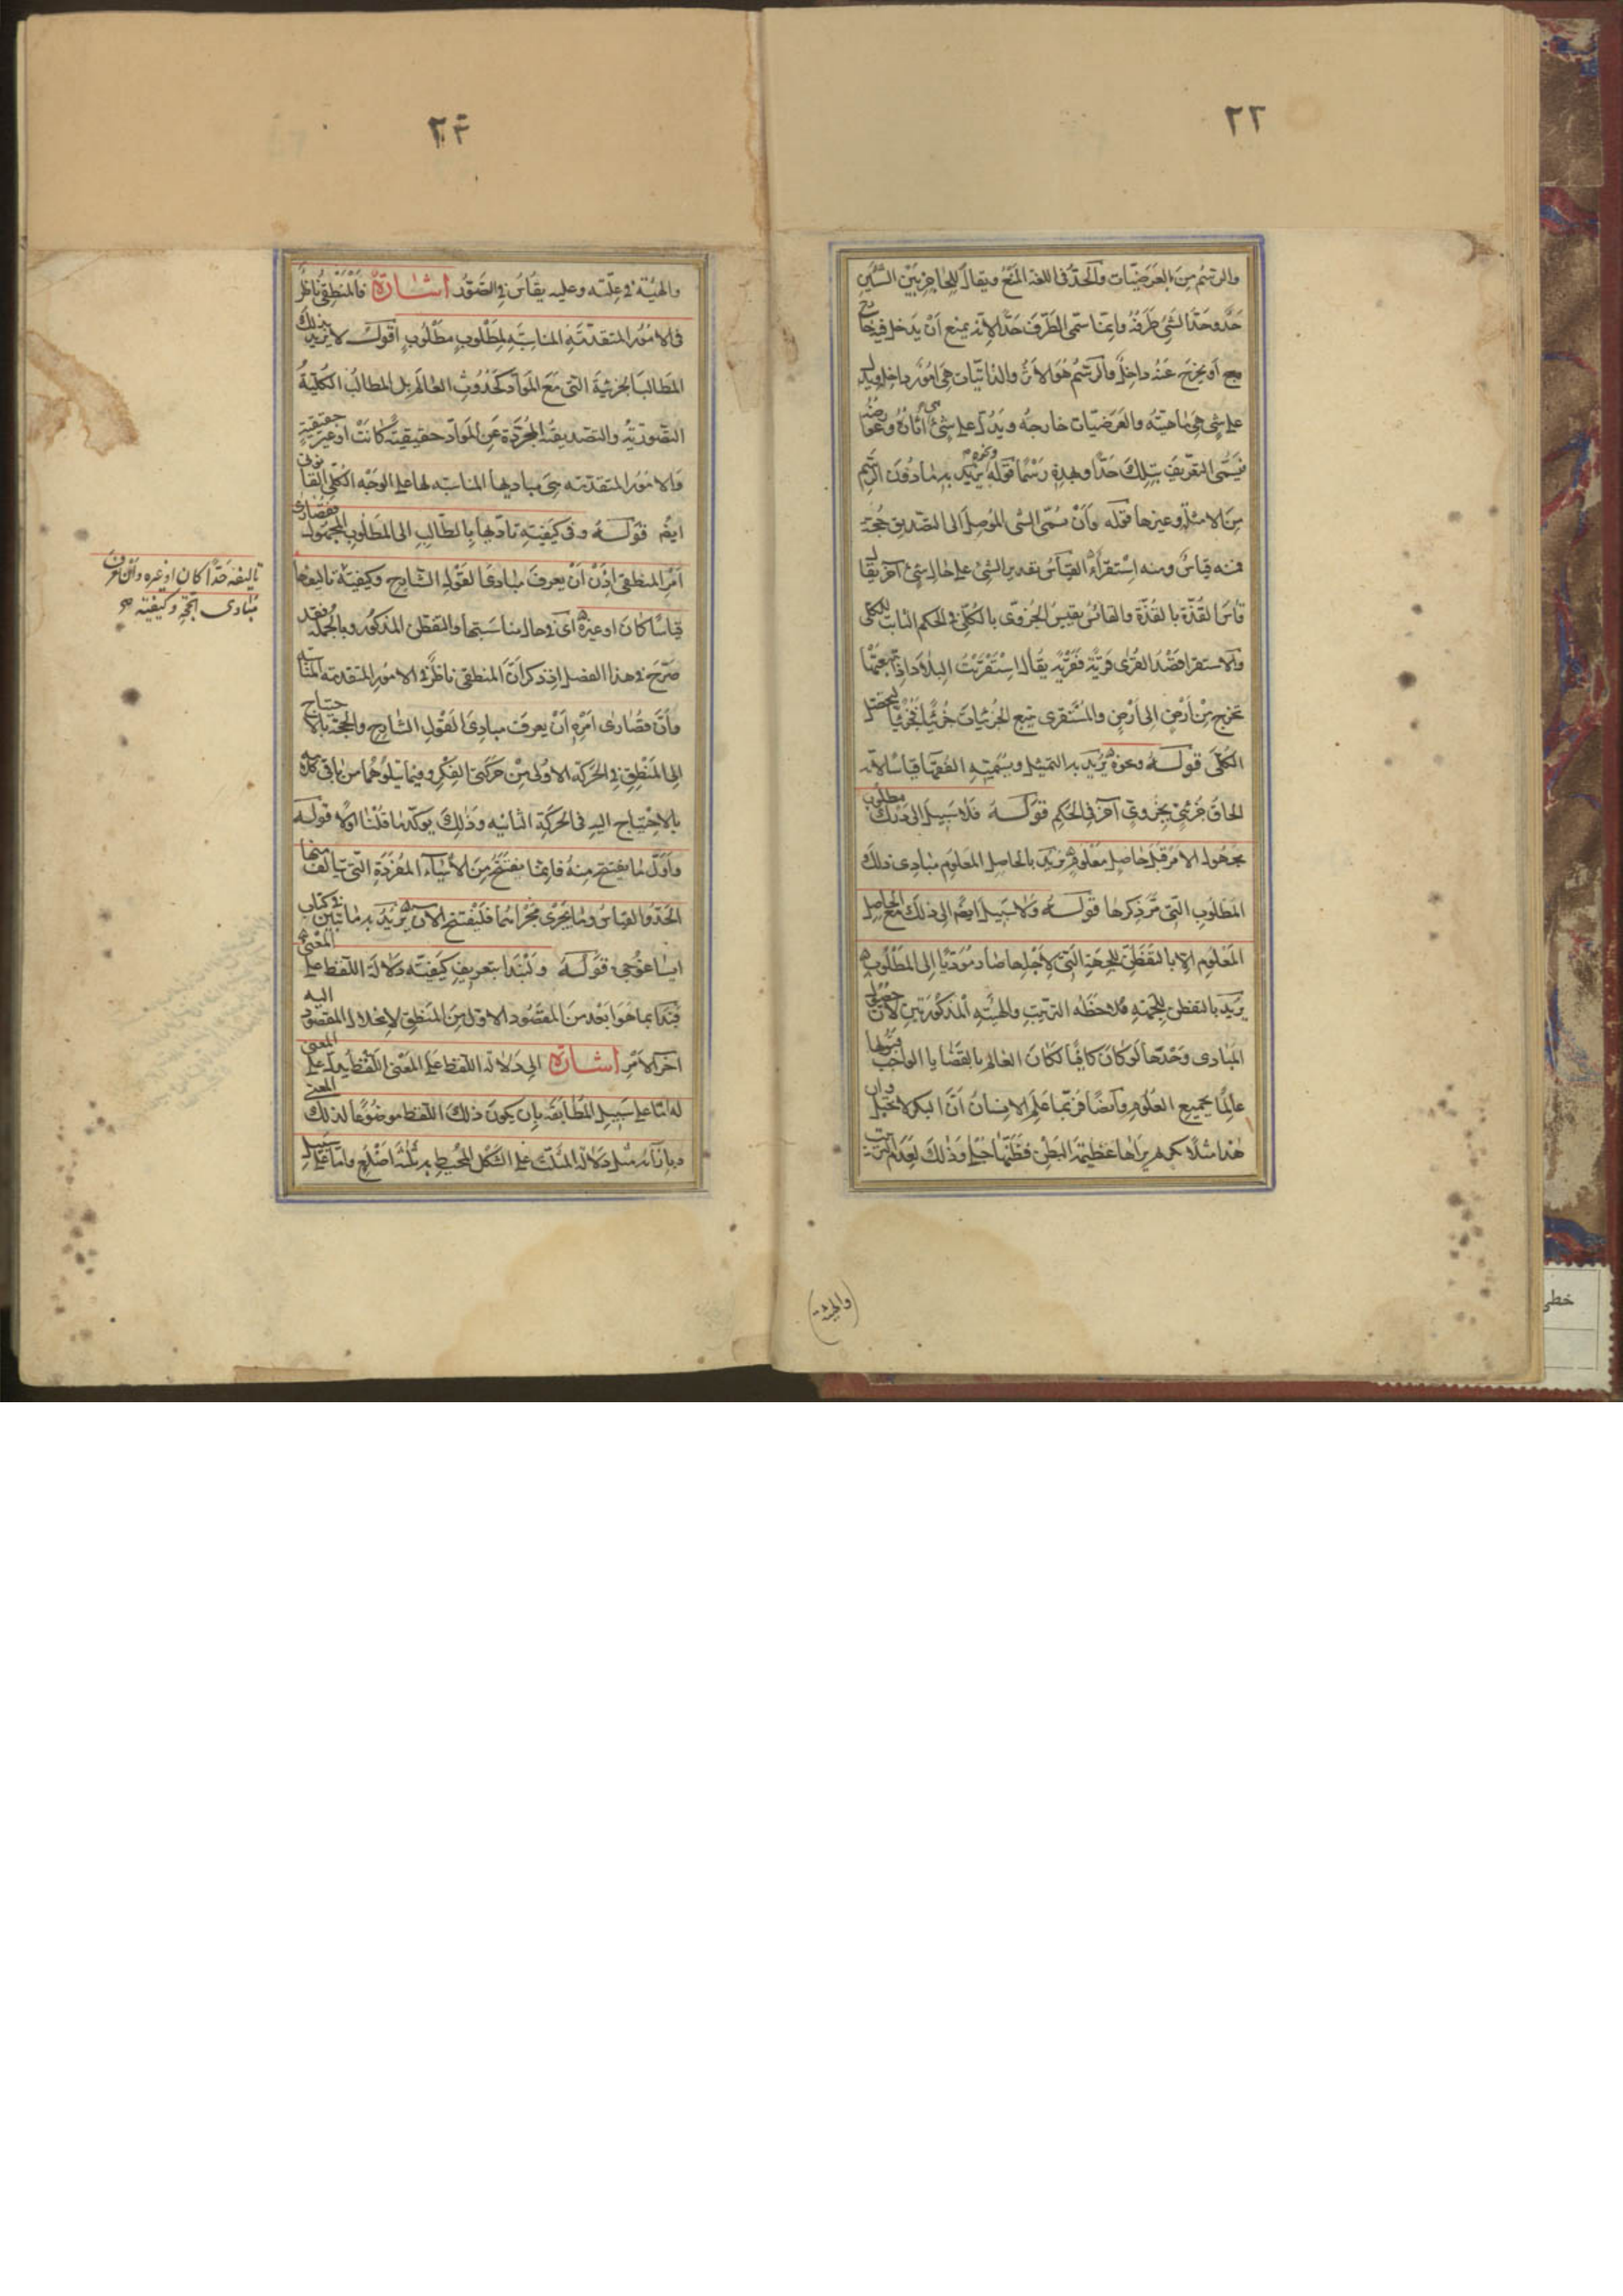 ٢٢
والرسم من العرضيات والحد فى اللغة المنع ويقال للحاجز بين الشيئين
حد وحد الشئ طرفه وانما سمى الطرف حدا لانه يمنع ان يدخل فيه خارج
او يخرج عنه داخل والرسم هو الاثر والذاتيات هى امور داخلة ويدل
على شئ هى ماهيته والعرضيات خارجه ويدل على شئ هى اثاره وعوارضه
فيسمى التعريف بتلك حدا وبهذه رسما قوله ونحوه يريد به ما دون الرسم
من الامثلة وغيرها قوله وان سمى الشئ الموصل الى التصديق حجة
فمنه قياس ومنه استقراء القياس تقدير الشئ على مثال شئ آخر يقال
قاس القذة بالقذة والقائس يقيس الجزوى بالكلى فى الحكم الثابت للكلى
والاستقراء قصد القرى قرية فقرية يقال استقريت البلاد اذا تتبعتها
تخرج من ارض الى ارض والمستقرى يتبع الجزئيات جزئيا فجزئيا ليحصل
الكلى قوله ونحوه يريد به التمثيل ويسميه الفقهاء قياسا لانه
الحاق جزئى بجزوى آخر فى الحكم قوله فلا سبيل الى درك مطلوب
مجهول الا من قبل حاصل معلوم يريد بالحاصل المعلوم مبادى ذلك
المطلوب التى مر ذكرها قوله ولا سبيل ايضا الى ذلك مع الحاصل
المعلوم الا بالتفطن للجهة التى لاجلها صار مؤديا الى المطلوب
يريد بالتفطن للجهة ملاحظة الترتيب والهيئة المذكورتين لان حصول
المبادى وحدها لو كان كافيا لكان العالم بالقضايا الواجب قبولها
عالما بجميع العلوم وايضا فربما علم الانسان ان البكر لا تحبل وان
هند مثلا بكر ثم يراها عظيمة البطن فظنها حبلى وذلك لعدم الترتيب
(والهيئة)
٢٣
والهيئة فى علته وعليه يقاس فى التصور اشارة فالمنطقى ناظر
فى الامور المتقدمة المناسبة لمطلوب مطلوب اقول لا يريد بذلك
المطالب الجزئية التى مع المواد كحدوث العالم بل المطالب الكلية
التصورية والتصديقية المجردة عن المواد حقيقية كانت او غير حقيقية
والامور المتقدمة هى مباديها المناسبة لها على الوجه الكلى القانونى
ايضا قوله وفى كيفية تاديها بالطالب الى المطلوب المجهول فقصارى
امر المنطقى اذن ان يعرف مبادى القول الشارح وكيفية تاليفها
قياسا كان او غيره اى فى حال مناسبتها والتفطن المذكور وبالجملة فقد
صرح فى هذا الفصل اذ ذكر ان المنطقى ناظر فى الامور المتقدمة المناسبة
وان قصارى امره ان يعرف مبادى القول الشارح والحجة بالاحتياج
الى المنطق فى الحركة الاولى من حركتى الفكر وفيما يتلوهما من باقى كلامه
بالاحتياج اليه فى الحركة الثانيه وذلك يؤكد ما قلنا اولا قوله
واول ما يفتتح منه فانما يفتتح من الاشياء المفردة التى يتالف منها
الحد والقياس وما يجرى مجراهما فليفتتح الآن يريد به ما تبين فى كتاب
ايساغوجى قوله ولنبدأ بتعريف كيفية دلالة اللفظ على المعنى
فبدا بما هو ابعد من المقصود الاول من المنطق لانحلال المقصود اليه
آخر الامر اشارة الى دلالة اللفظ على المعنى اللفظ يدل على المعنى
له اما على سبيل المطابقة بان يكون ذلك اللفظ موضوعا لذلك المعنى
وبازائه مثل دلالة المثلث على الشكل المحيط به ثلثة اضلع واما على سبيل
تاليفه حدا كان او غيره وان يعرف
مبادى الحجة وكيفية
خطى